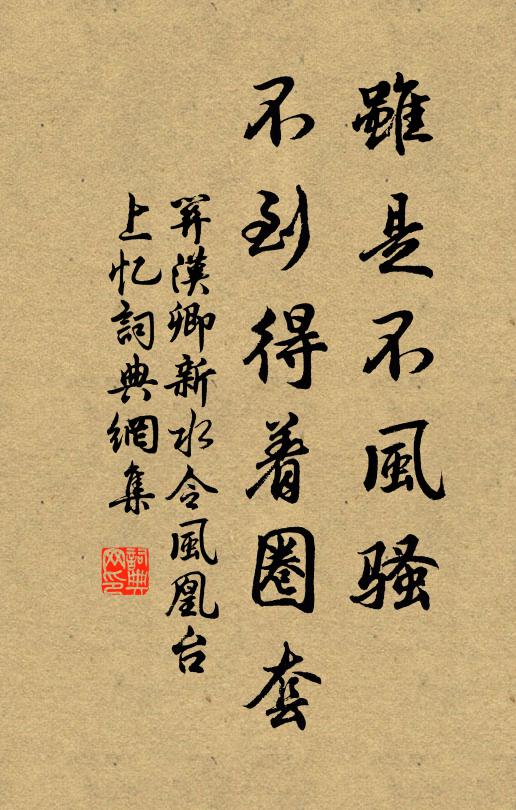 雖是不風騷
不到得着圈套
關漢卿新水令風凰台
上忆詞典網集
詞典
网印